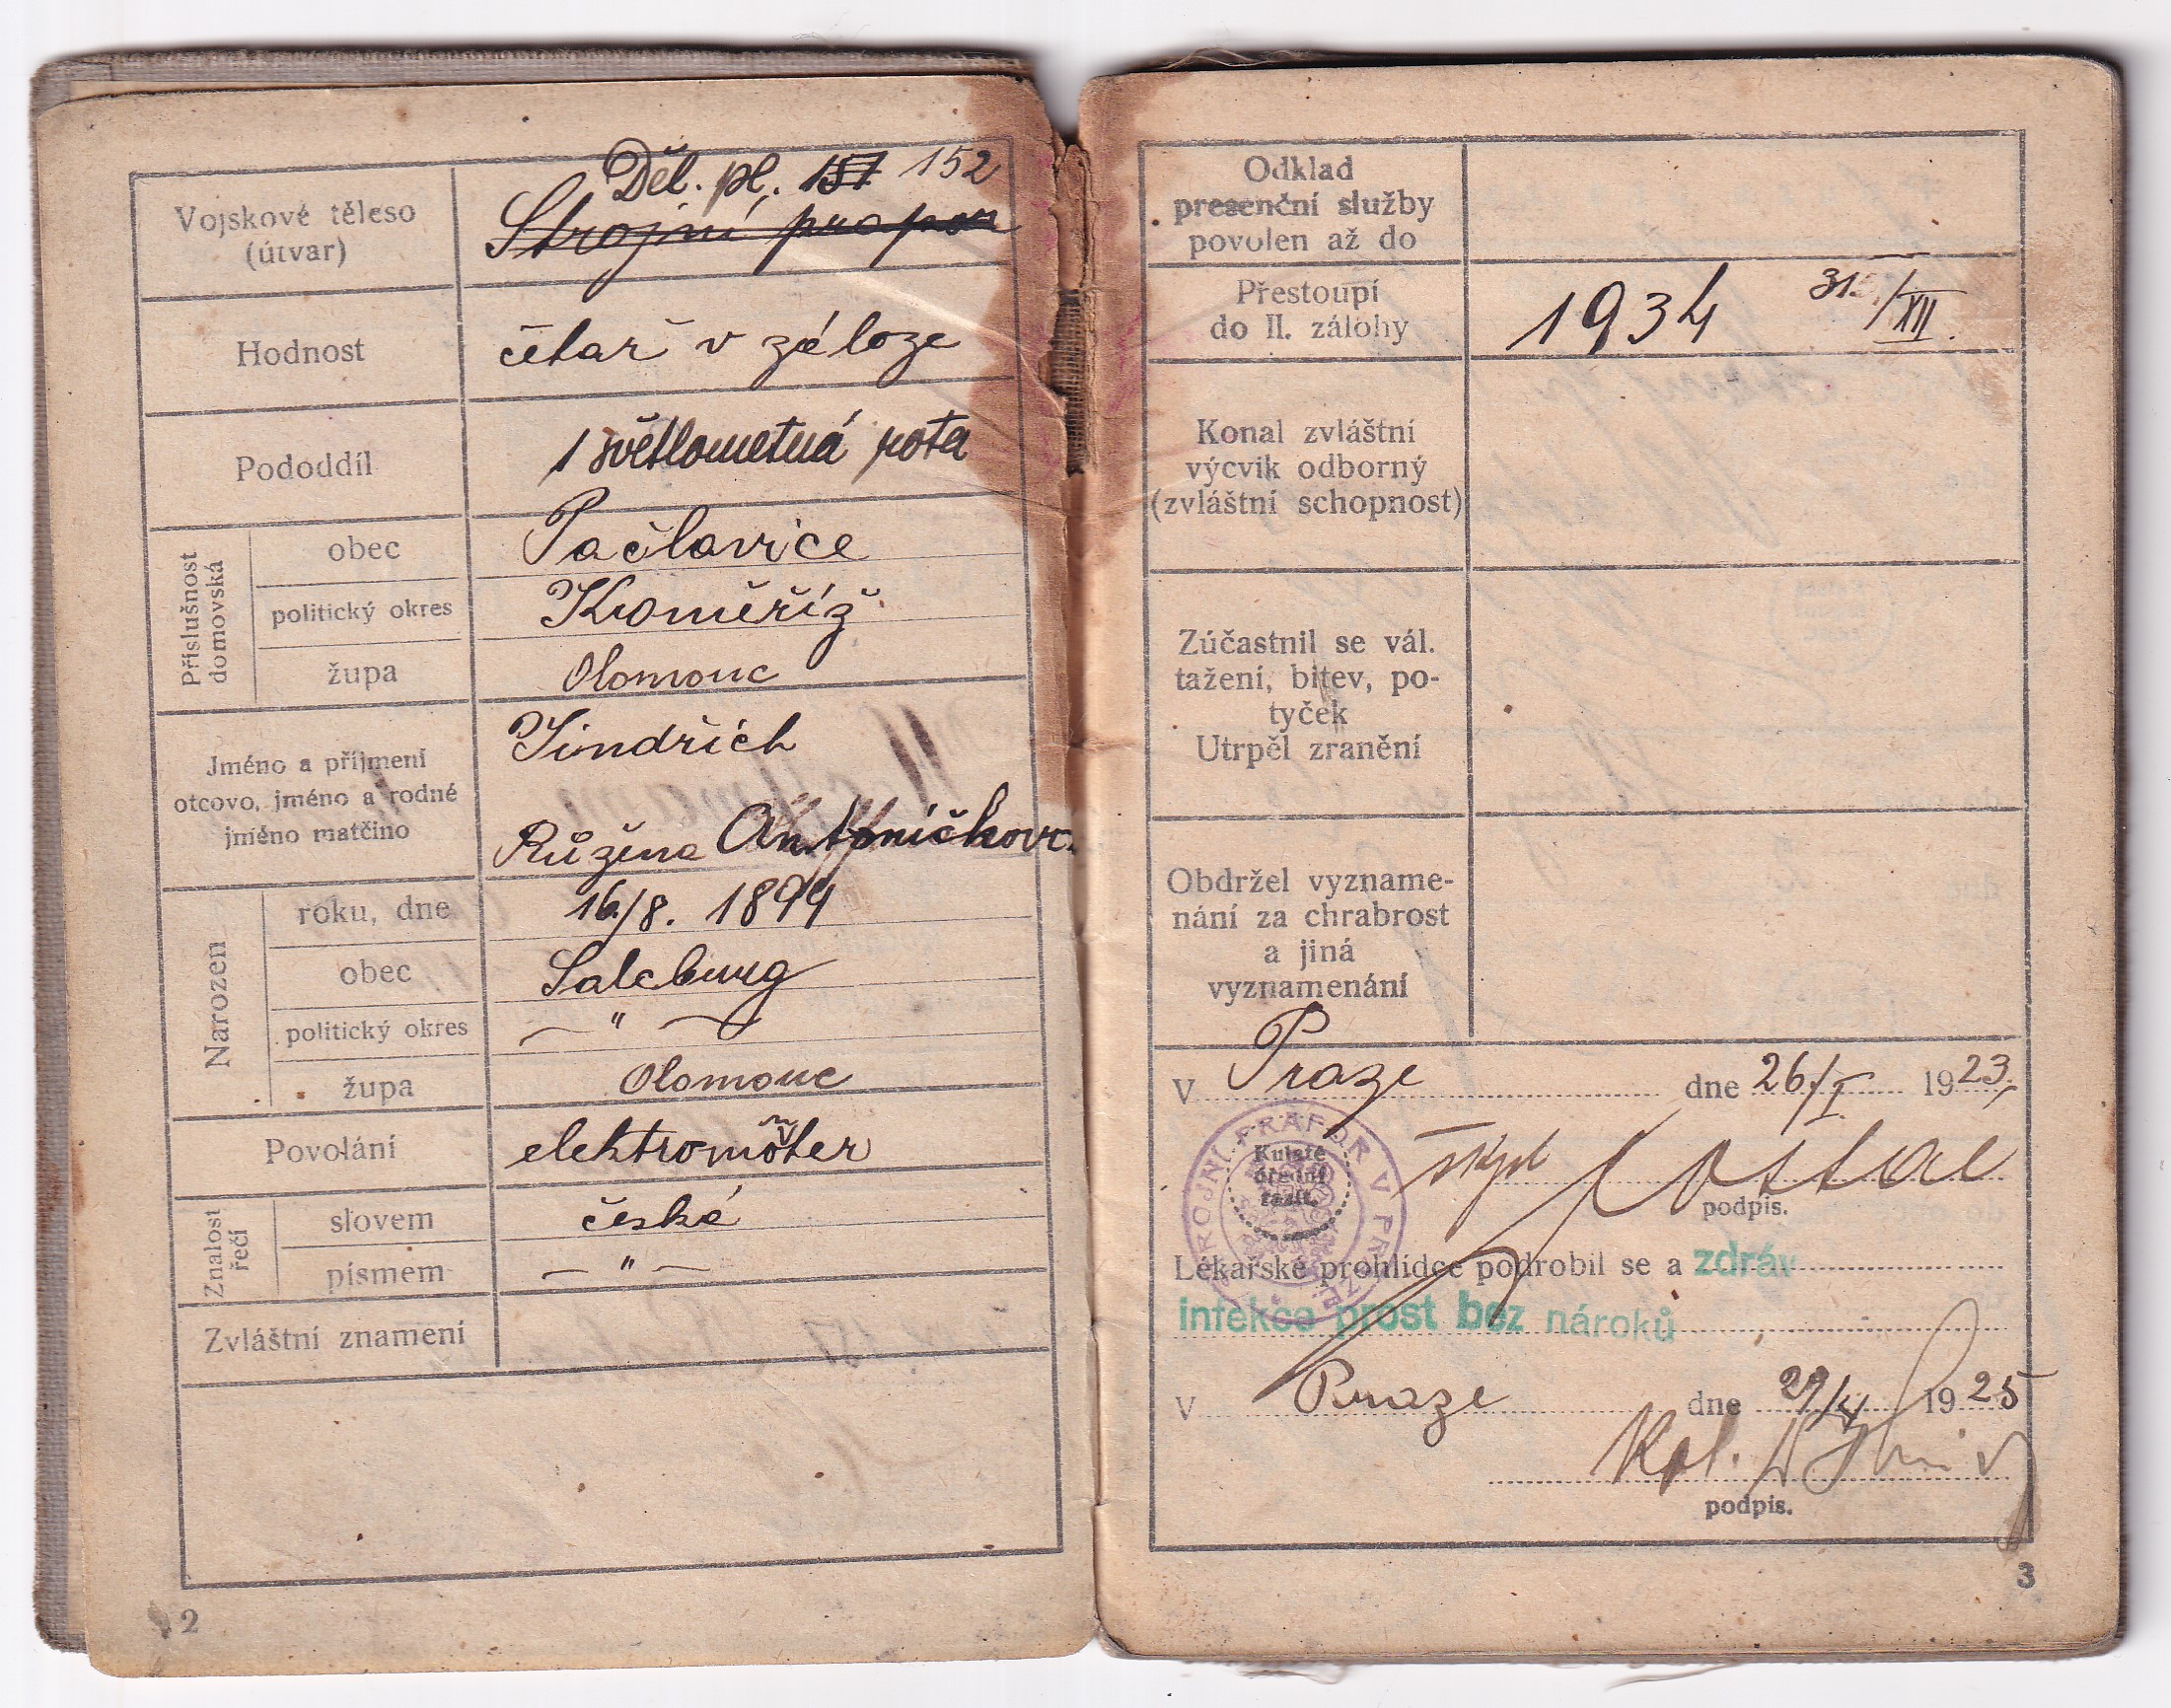 Vojskové těleso
(útvar)
Děl. pl. 151 152
Strojní prapor
Hodnost
četař v záloze
Pododdíl
1 světlometná rota
Příslušnost
domovská
obec
Pačlavice
politický okres
Kroměříž
župa
Olomouc
Jméno a příjmení
otcovo, jméno a rodné
jméno matčino
Jindřich
Růžena Antoníčkov
Narozen
roku, dne
16/8. 1899
obec
Salcburg
politický okres
— " —
župa
Olomouc
Povolání
elektromonter
Znalost
řečí
slovem
české
písmem
— " —
Zvláštní znamení
2
Odklad
presenční služby
povolen až do
Přestoupí
do II. zálohy
1934 31./XII.
Konal zvláštní
výcvik odborný
(zvláštní schopnost)
Zúčastnil se vál.
tažení, bitev, po-
tyček
Utrpěl zranění
Obdržel vyzname-
nání za chrabrost
a jiná
vyznamenání
V Praze dne 26./I. 1923.
Kulaté
úřední
razít.
podpis.
Lékařské prohlídce podrobil se a zdráv
infekce prost bez nároků
V Praze dne 29/ 1925
podpis.
3